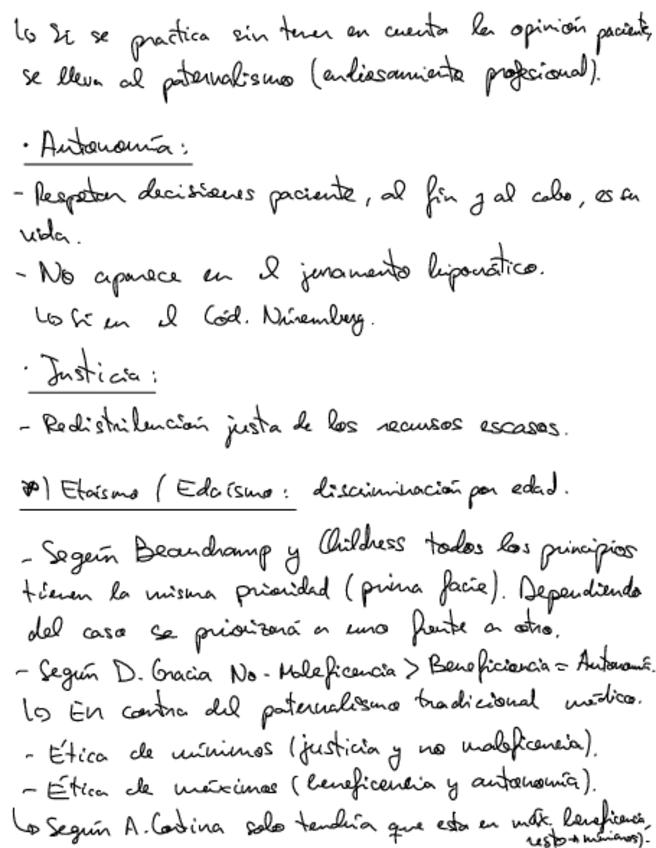 ↳ Si se practica sin tener en cuenta la opinión paciente,
se lleva al paternalismo (endiosamiento profesional).
· Autonomía:
- Respetar decisiones paciente, al fin y al cabo, es su
vida.
- No aparece en el juramento hipocrático.
↳ Si en el Cód. Núremberg.
· Justicia:
- Redistribución justa de los recursos escasos.
*) Etaísmo / Edaísmo: discriminación por edad.
- Según Beauchamp y Childress todos los principios
tienen la misma prioridad (prima facie). Dependiendo
del caso se priorizará a uno frente a otro.
- Según D. Gracia No-Maleficencia > Beneficiencia = Autonomía.
↳ En contra del paternalismo tradicional médico.
- Ética de mínimos (justicia y no maleficencia).
- Ética de máximos (beneficencia y autonomía).
↳ Según A. Cortina solo tendría que estar en máx. beneficencia,
resto → mínimos).